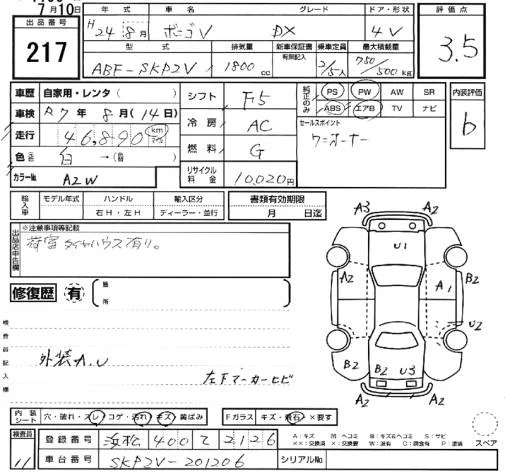 7月10日
出品番号 217
年式 H24年8月 車名 ボーゴV グレード DX ドア・形状 4V
型式 ABF-SKP2V 排気量 1800cc 新車保証書 有無記入 乗車定員 2/5人 最大積載量 750/500kg
評価点 3.5
車歴 自家用・レンタ( )
車検 R7年8月(14日)
走行 46,890 km
色 白 →( )
カラーNo. A2W
シフト F5
冷房 AC
燃料 G
リサイクル料金 10,020円
純正のみ PS PW AW SR
ABS エアB TV ナビ
セールスポイント
ワンオーナー
内装評価 b
輸入車 モデル年式 ハンドル 右H・左H 輸入区分 ディーラー・並行
書類有効期限 月 日迄
出品店申告欄 ※注意事項等記載
荷室タイヤハウス有り。
修復歴 有 ( 箇所
検査員記入欄
外装A.U
左下マーカーヒビ
A3 A2 U1 A2 B2 A1 A2 U2 B2 B2 U3 A2
内装シート 穴・破れ・スレ・コゲ・汚れ・キズ・黄ばみ
Fガラス キズ・飛石・×要す
A:キズ M:ヘコミ B:キズ&ヘコミ S:サビ
スペア
検査員 11
登録番号 浜松 400 て 2126
車台番号 SKP2V-201206 シリアルNo.